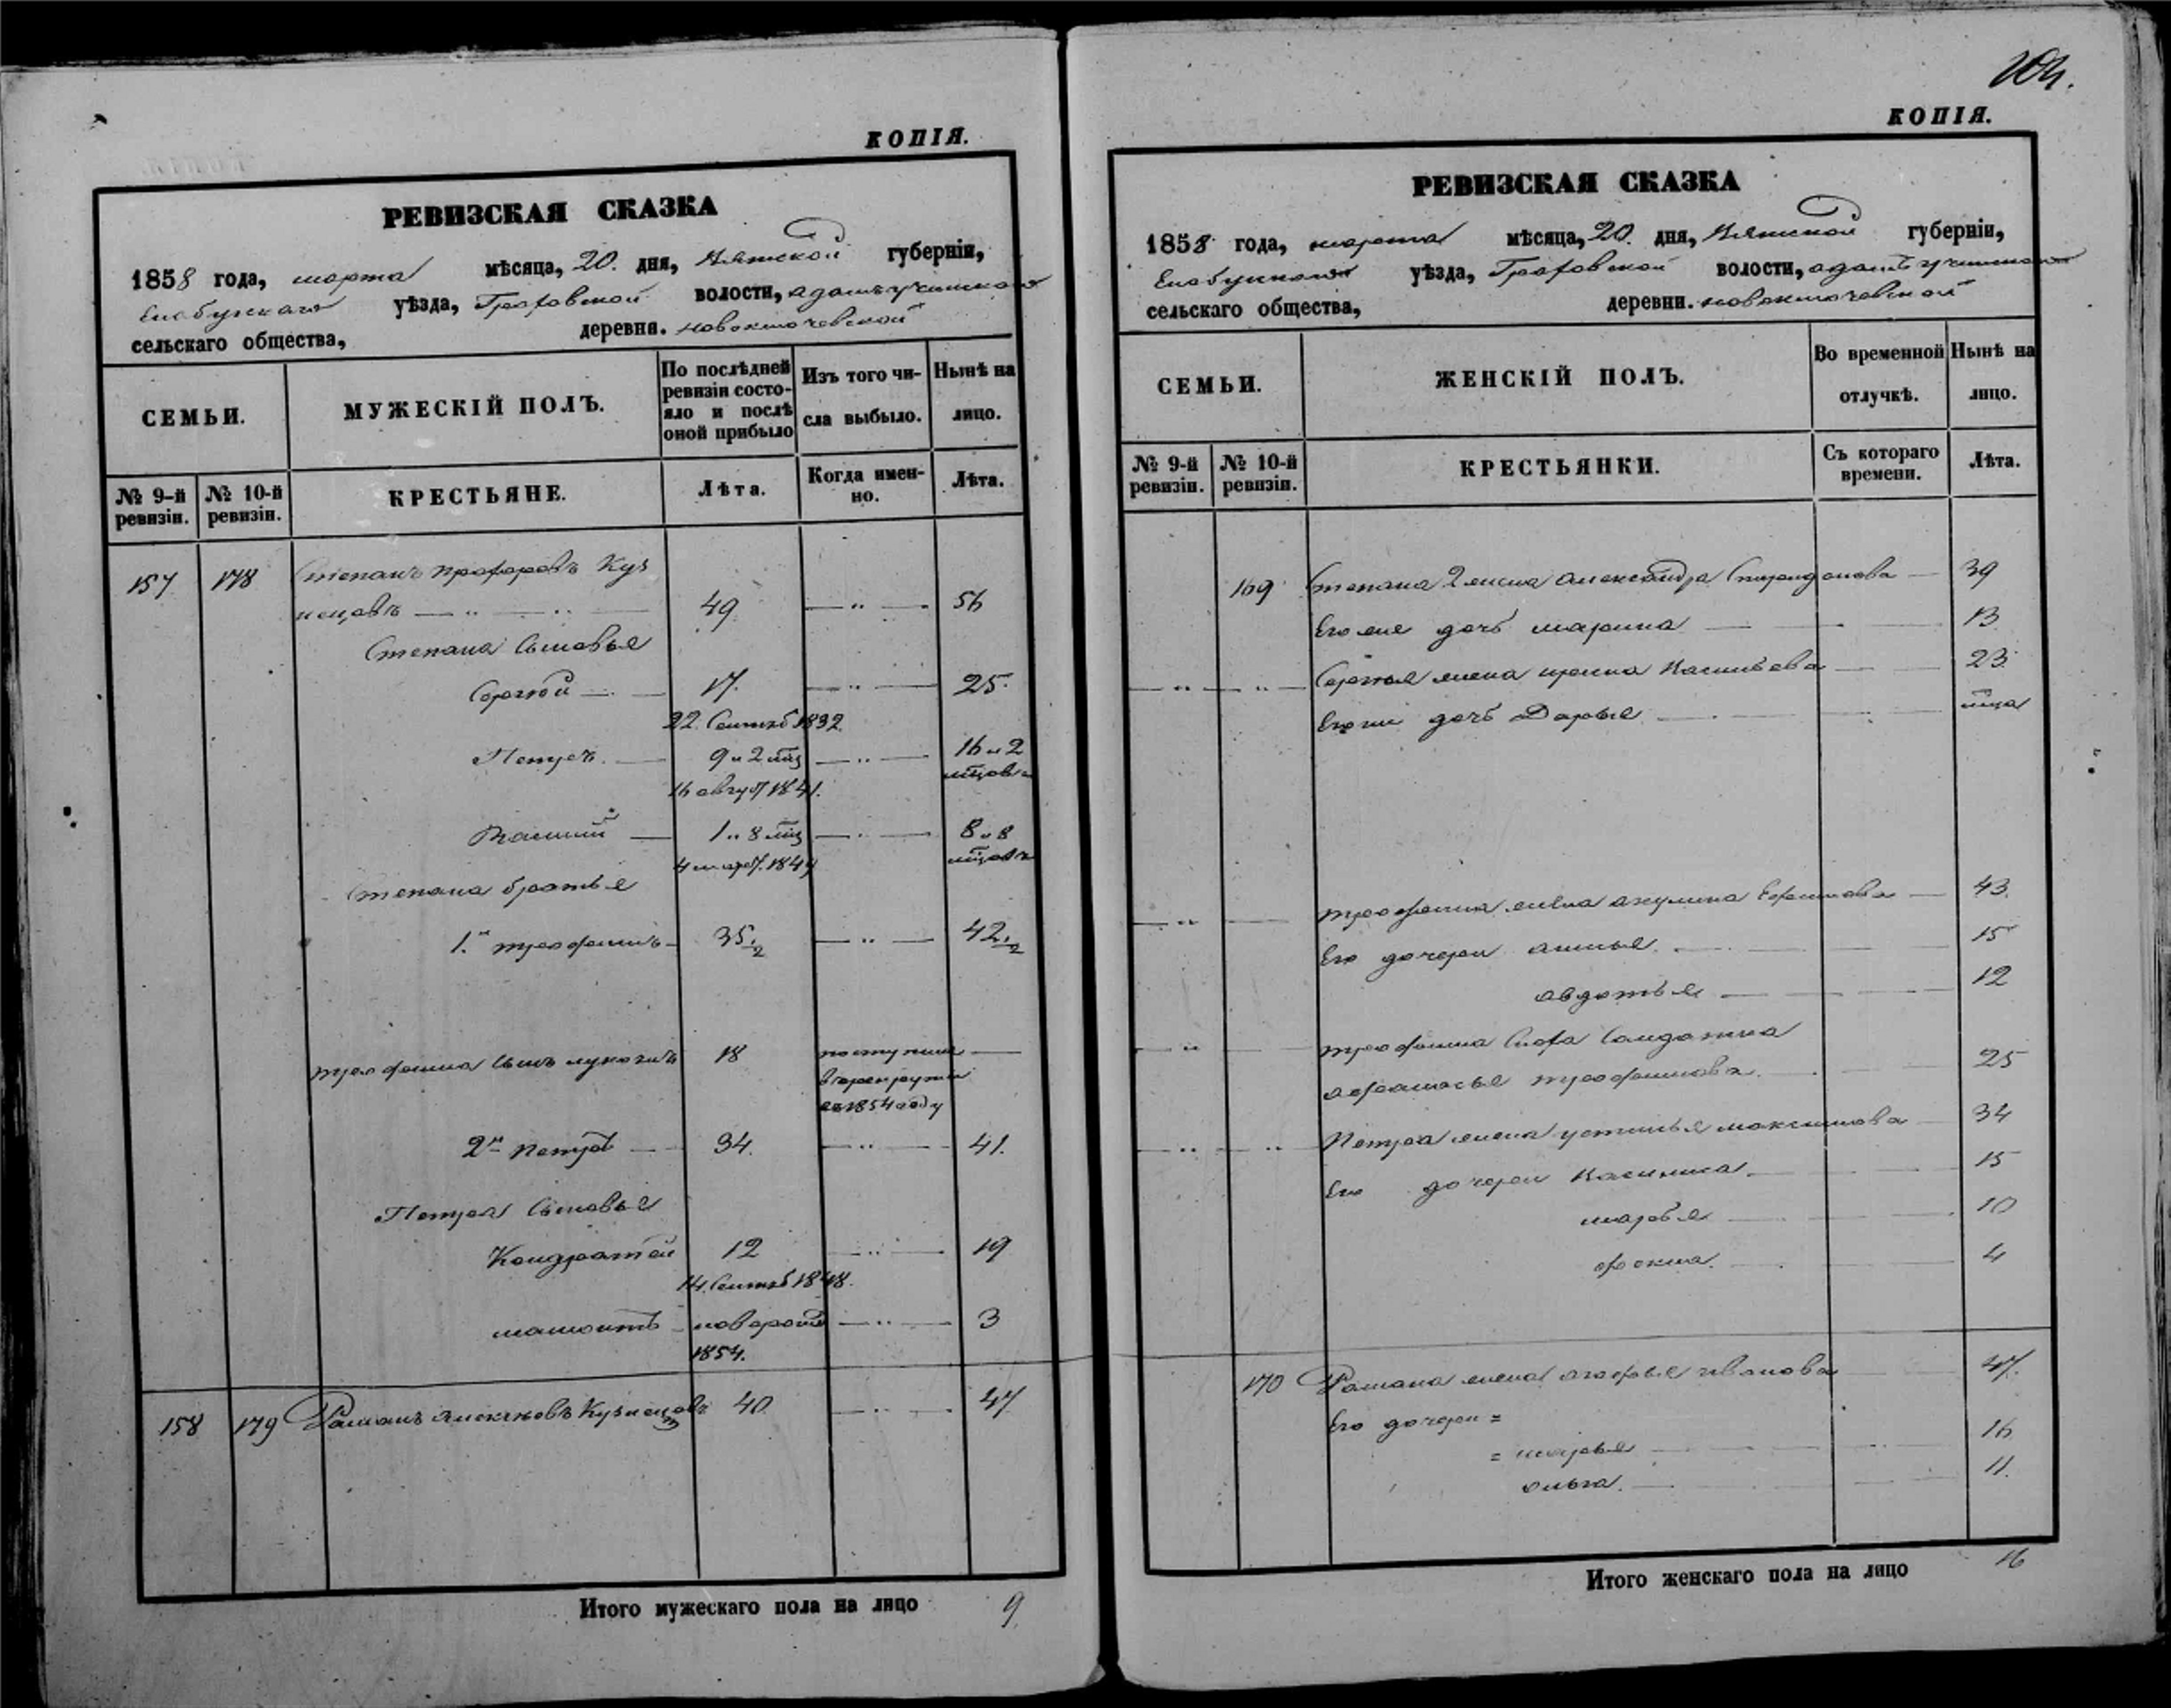 КОПІЯ.
РЕВИЗСКАЯ СКАЗКА
1858 года, марта мѣсяца, 20. дня, Вятской губерніи,
Елабужскаго уѣзда, Граховской волости,
сельскаго общества, деревни. новоключевской
СЕМЬИ.
МУЖЕСКІЙ ПОЛЪ.
По послѣдней
ревизіи состо-
яло и послѣ
оной прибыло
Изъ того чи-
сла выбыло.
Нынѣ на
лицо.
№ 9-й
ревизіи.
№ 10-й
ревизіи.
КРЕСТЬЯНЕ.
Лѣта.
Когда имен-
но.
Лѣта.
157 178 Степанъ Прохоровъ Куз
нецовъ 49 56
Степана сыновья
Сергѣй 17. 25.
22. Сентяб 1832
Петръ. 9 и 2 мѣс 16 и 2
мѣсяцов
16 август 1841.
Василий 1 и 8 мѣс 8 и 8
мѣсяцов
4 март. 1849
Степана братья
1.й трофимъ 35 1/2 42 1/2
трофима сынъ 18 поступил
в рекруты
въ 1854 году
2й Петръ 34. 41.
Петра сыновья
Кондратей 12 19
14. Сентяб 1848.
новорож 3
1854.
158 179 Романъ Кузнецовъ 40 47
Итого мужескаго пола на лицо 9
104.
КОПІЯ.
РЕВИЗСКАЯ СКАЗКА
1858 года, марта мѣсяца, 20. дня, Вятской губерніи,
Елабужскаго уѣзда, Граховской волости,
сельскаго общества, деревни. новоключевской
СЕМЬИ.
ЖЕНСКІЙ ПОЛЪ.
Во временной
отлучкѣ.
Нынѣ на
лицо.
№ 9-й
ревизіи.
№ 10-й
ревизіи.
КРЕСТЬЯНКИ.
Съ котораго
времени.
Лѣта.
169 Степана 2 жена александра Спиридонова 39
Его же дочь марина 13
Сергѣя жена ирина Васильева 23
Его же дочь Дарья мѣца
трофима жена акулина Ефимова 43.
Его дочери анна 15
авдотья 12
трофима Снора солдатка
афанасья трофимова. 25
Петра жена устинья максимова 34
Его дочери Василиса 15
марья 10
фекла. 4
170 Романа жена агафья иванова 47.
Его дочери =
= марья 16
ольга. 11.
Итого женскаго пола на лицо 16